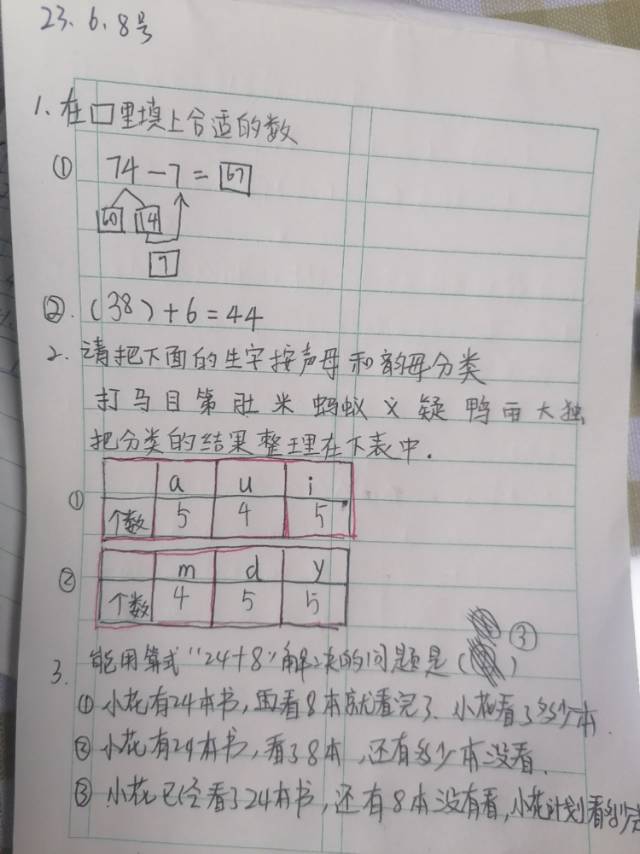 23.6.8号
1.在口里填上合适的数
① 74-7=67
60 14
7
②.(38)+6=44
2.请把下面的生字按声母和韵母分类
打 马 目 第 肚 米 蚂蚁 义 疑 鸭 雨 大 独
把分类的结果整理在下表中.
① a u i
个数 5 4 5
② m d y
个数 4 5 5
3.能用算式"24+8"解决的问题是( ) ③
①小花有24本书,再看8本就看完了.小花看了多少本
②小花有24本书,看了8本,还有多少本没看.
③小花已经看了24本书,还有8本没有看,小花计划看多少